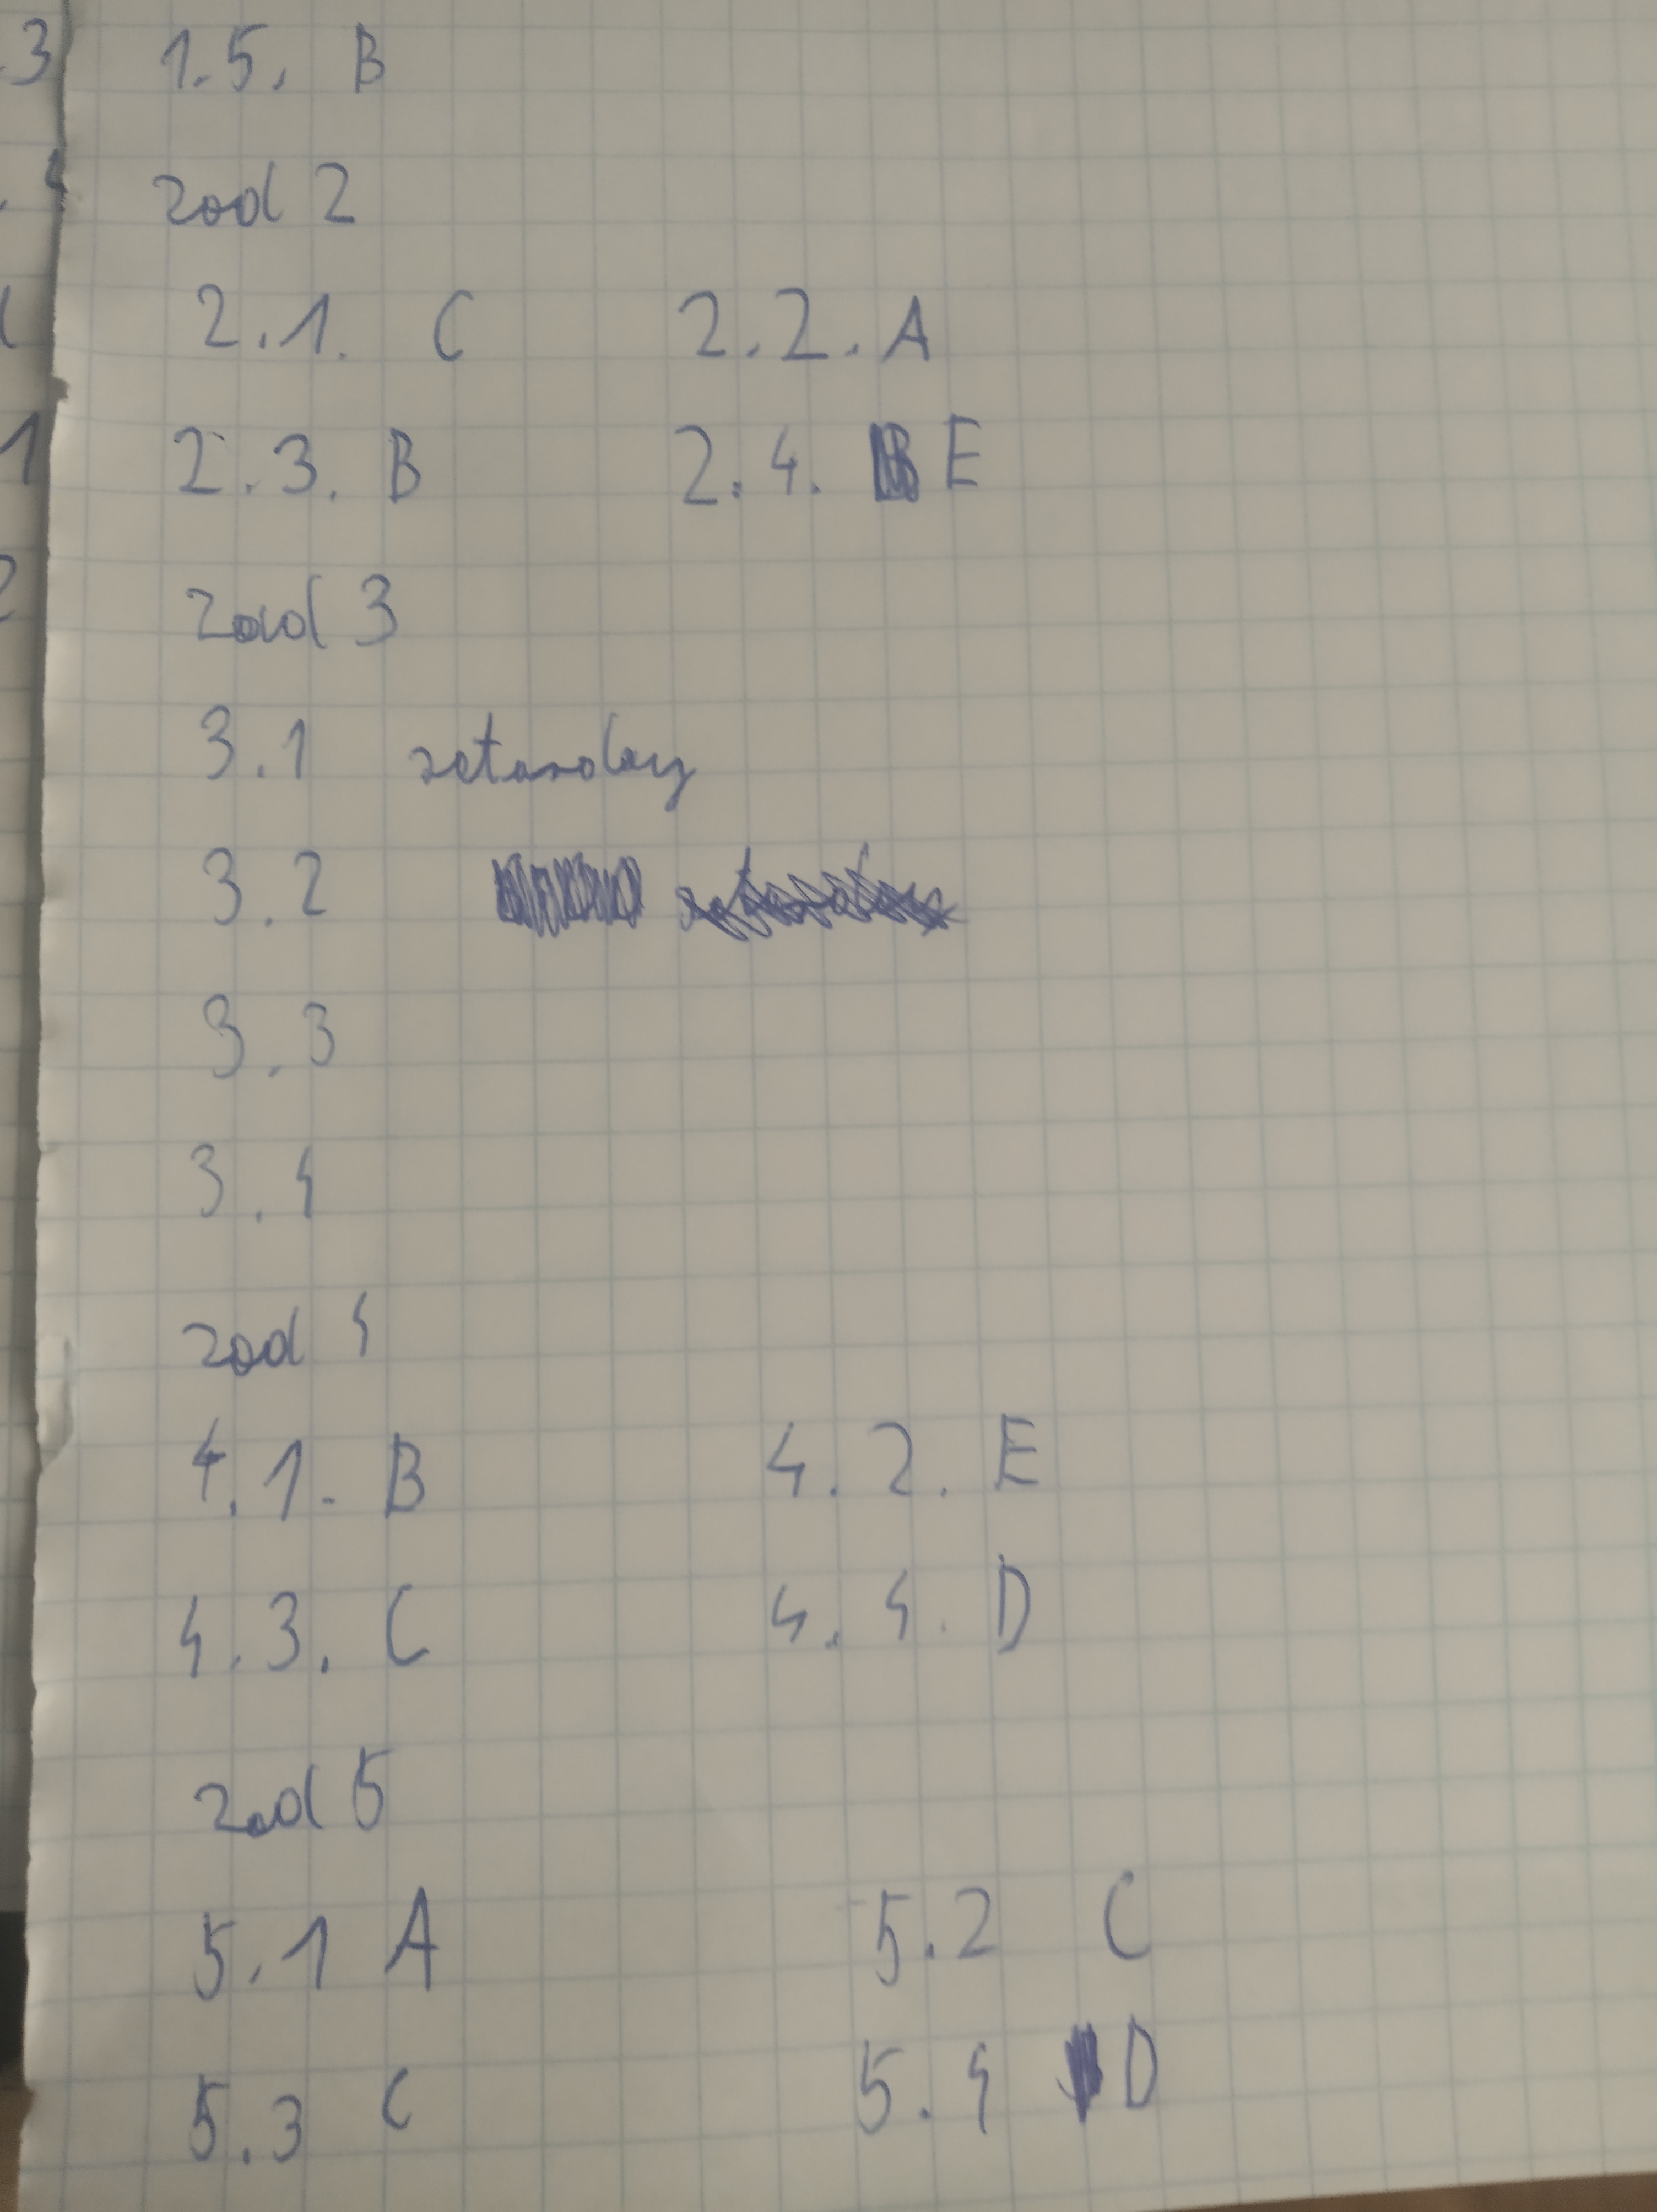 3 1.5. B
zad 2
2.1. C 2.2. A
1 2.3. B 2.4. E
zad 3
3.1
3.2
3.3
3.4
zad 4
4.1. B 4.2. E
4.3. C 4.4. D
zad 5
5.1 A 5.2 C
5.3 C 5.4 D